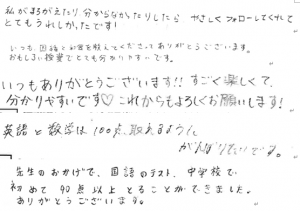 私がまちがえたり分からなかったりしたら やさしくフォローしてくれて
とてもうれしかったです!
いつも、国語と を教えてくださってありがとうございます。
おもしろい授業でとても分かりやすいです。
いつもありがとうございます!! すごく楽しくて、
分かりやすいです♡ これからもよろしくお願いします!
英語と数学は100点取れるように
がんばりたいです。
先生のおかげで、国語のテスト、中学校で
初めて90点以上とることができました。
ありがとうございます。